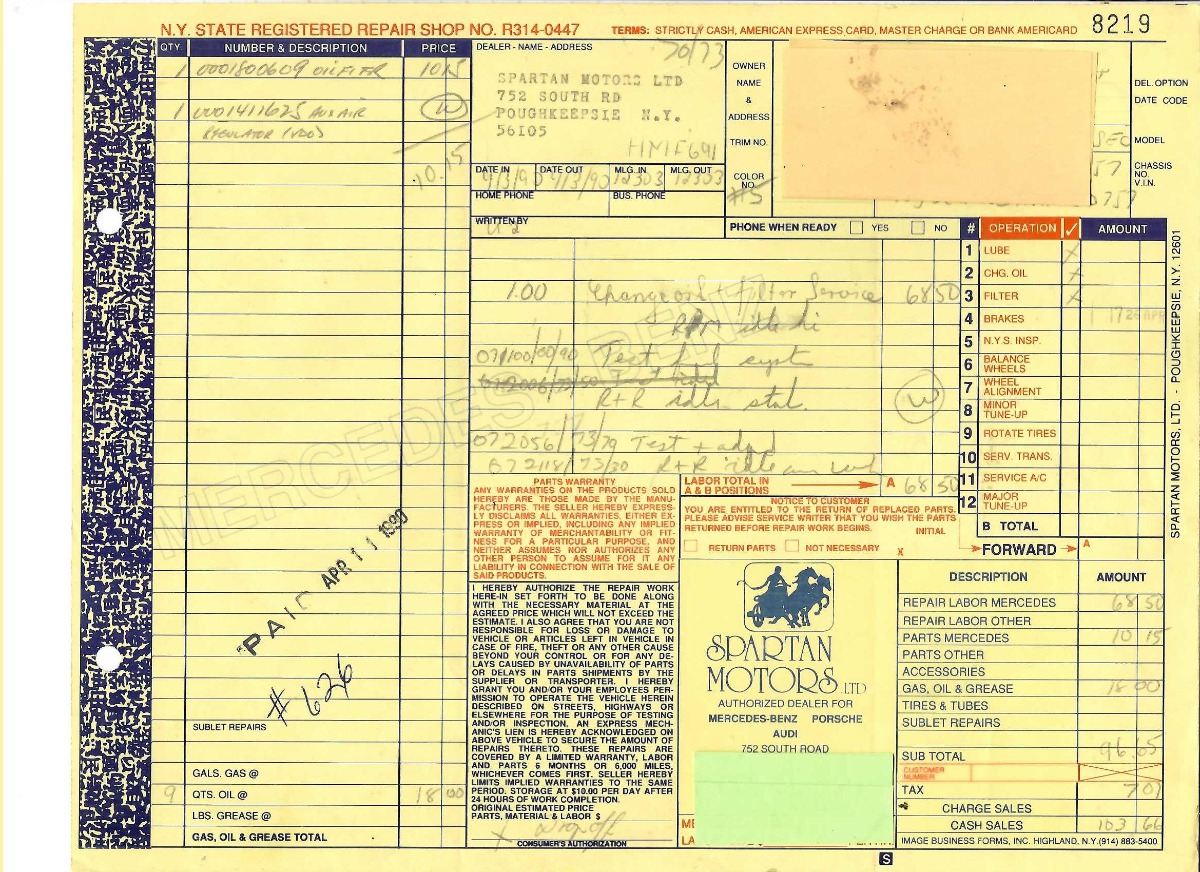 N.Y. STATE REGISTERED REPAIR SHOP NO. R314-0447
TERMS: STRICTLY CASH, AMERICAN EXPRESS CARD, MASTER CHARGE OR BANK AMERICARD 8219
QTY. NUMBER & DESCRIPTION PRICE
1 0001800609 OIL FILTER 10 15
1 0001411625 AUX AIR W
REGULATOR (VDO)
10.15
SUBLET REPAIRS
GALS. GAS @
9 QTS. OIL @ 18 00
LBS. GREASE @
GAS, OIL & GREASE TOTAL
PAID APR 11 1990
# 626
MERCEDES BENZ
DEALER - NAME - ADDRESS 70/73
SPARTAN MOTORS LTD
752 SOUTH RD
POUGHKEEPSIE N.Y.
56105
HMIF691
DATE IN DATE OUT MLG. IN MLG. OUT
4/3/90 4/3/90 12303 12303
HOME PHONE BUS. PHONE
WRITTEN BY
OWNER
NAME
&
ADDRESS
TRIM NO.
COLOR
NO.
#5
DEL. OPTION
DATE CODE
SEC MODEL
57 CHASSIS
NO.
V.I.N.
0757
PHONE WHEN READY YES NO
1.00 Change oil + Filter Service 68 50
RPM idle
07/100/00/90 Test fuel system
R+R idle stab.
W
072056/73/79 Test + adjust
072118/73/30 R+R idle air valve
LABOR TOTAL IN
A & B POSITIONS A 68 50
# OPERATION ✓ AMOUNT
1 LUBE X
2 CHG. OIL X
3 FILTER X
4 BRAKES
5 N.Y.S. INSP.
6 BALANCE
WHEELS
7 WHEEL
ALIGNMENT
8 MINOR
TUNE-UP
9 ROTATE TIRES
10 SERV. TRANS.
11 SERVICE A/C
12 MAJOR
TUNE-UP
B TOTAL
FORWARD A
SPARTAN MOTORS, LTD. - POUGHKEEPSIE, N.Y. 12601
PARTS WARRANTY
ANY WARRANTIES ON THE PRODUCTS SOLD
HEREBY ARE THOSE MADE BY THE MANU-
FACTURERS. THE SELLER HEREBY EXPRESS-
LY DISCLAIMS ALL WARRANTIES, EITHER EX-
PRESS OR IMPLIED, INCLUDING ANY IMPLIED
WARRANTY OF MERCHANTABILITY OR FIT-
NESS FOR A PARTICULAR PURPOSE, AND
NEITHER ASSUMES NOR AUTHORIZES ANY
OTHER PERSON TO ASSUME FOR IT ANY
LIABILITY IN CONNECTION WITH THE SALE OF
SAID PRODUCTS.
NOTICE TO CUSTOMER
YOU ARE ENTITLED TO THE RETURN OF REPLACED PARTS.
PLEASE ADVISE SERVICE WRITER THAT YOU WISH THE PARTS
RETURNED BEFORE REPAIR WORK BEGINS.
INITIAL
RETURN PARTS NOT NECESSARY X
I HEREBY AUTHORIZE THE REPAIR WORK
HERE-IN SET FORTH TO BE DONE ALONG
WITH THE NECESSARY MATERIAL AT THE
AGREED PRICE WHICH WILL NOT EXCEED THE
ESTIMATE. I ALSO AGREE THAT YOU ARE NOT
RESPONSIBLE FOR LOSS OR DAMAGE TO
VEHICLE OR ARTICLES LEFT IN VEHICLE IN
CASE OF FIRE, THEFT OR ANY OTHER CAUSE
BEYOND YOUR CONTROL OR FOR ANY DE-
LAYS CAUSED BY UNAVAILABILITY OF PARTS
OR DELAYS IN PARTS SHIPMENTS BY THE
SUPPLIER OR TRANSPORTER. I HEREBY
GRANT YOU AND/OR YOUR EMPLOYEES PER-
MISSION TO OPERATE THE VEHICLE HEREIN
DESCRIBED ON STREETS, HIGHWAYS OR
ELSEWHERE FOR THE PURPOSE OF TESTING
AND/OR INSPECTION. AN EXPRESS MECH-
ANIC'S LIEN IS HEREBY ACKNOWLEDGED ON
ABOVE VEHICLE TO SECURE THE AMOUNT OF
REPAIRS THERETO. THESE REPAIRS ARE
COVERED BY A LIMITED WARRANTY, LABOR
AND PARTS 6 MONTHS OR 6,000 MILES,
WHICHEVER COMES FIRST. SELLER HEREBY
LIMITS IMPLIED WARRANTIES TO THE SAME
PERIOD. STORAGE AT $10.00 PER DAY AFTER
24 HOURS OF WORK COMPLETION.
ORIGINAL ESTIMATED PRICE
PARTS, MATERIAL & LABOR $
X Drop off
CONSUMER'S AUTHORIZATION
SPARTAN
MOTORS LTD
AUTHORIZED DEALER FOR
MERCEDES-BENZ PORSCHE
AUDI
752 SOUTH ROAD
DESCRIPTION AMOUNT
REPAIR LABOR MERCEDES 68 50
REPAIR LABOR OTHER
PARTS MERCEDES 10 15
PARTS OTHER
ACCESSORIES
GAS, OIL & GREASE 18 00
TIRES & TUBES
SUBLET REPAIRS
SUB TOTAL 96.65
CUSTOMER
NUMBER
TAX 7 01
CHARGE SALES
CASH SALES 103 66
IMAGE BUSINESS FORMS, INC. HIGHLAND, N.Y. (914) 883-5400
S